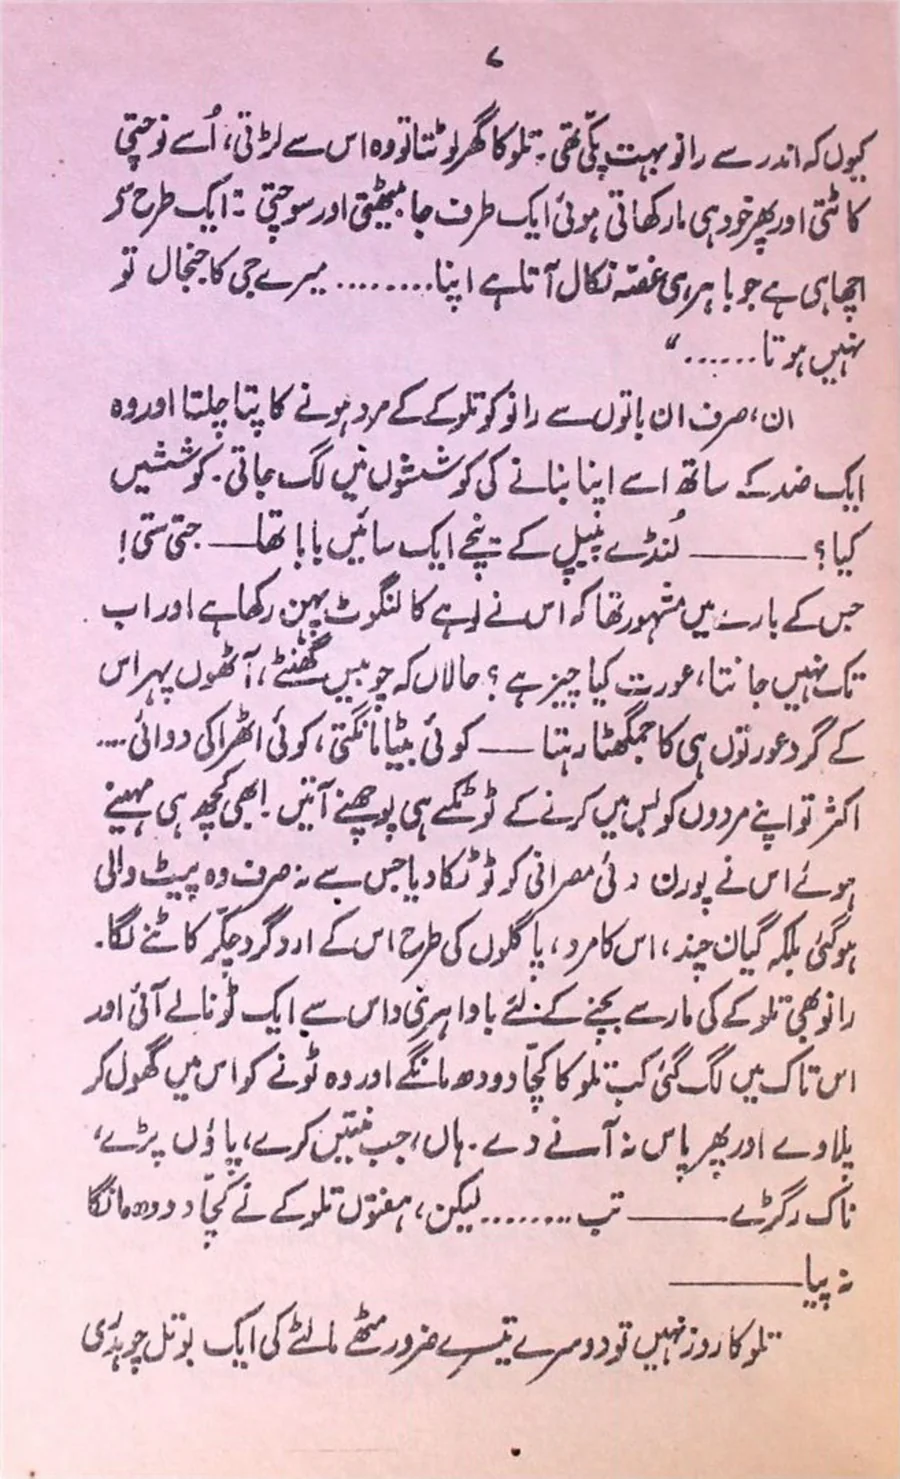 ۷
کیوں کہ اندر سے رانو بہت پکّی تھی۔ تلوکا گھر لوٹتا تو وہ اس سے لڑتی، اُسے نوچتی
کاٹتی اور پھر خود ہی مار کھاتی ہوئی ایک طرف جا بیٹھتی اور سوچتی: ایک طرح سے
اچھا ہی ہے جو باہر ہی غصّہ نکال آتا ہے اپنا........ میرے جی کا جنجال تو
نہیں ہوتا......“
ان، صرف ان باتوں سے رانو کو تلوکے کے مرد ہونے کا پتا چلتا اور وہ
ایک ضد کے ساتھ اسے اپنا بنانے کی کوششوں میں لگ جاتی۔ کوششیں
کیا؟ ——— لُنڈے پیپل کے نیچے ایک سائیں بابا تھا— جتی ستی!
جس کے بارے میں مشہور تھا کہ اس نے لوہے کا لنگوٹ پہن رکھا ہے اور اب
تک نہیں جانتا، عورت کیا چیز ہے؟ حالاں کہ چوبیس گھنٹے، آٹھوں پہر اس
کے گرد عورتوں ہی کا جمگھٹا رہتا — کوئی بیٹا مانگتی، کوئی اٹھرا کی دوائی....
اکثر تو اپنے مردوں کو بس میں کرنے کے ٹوٹکے ہی پوچھنے آتیں۔ ابھی کچھ ہی مہینے
ہوئے اس نے پورن دئی مصرانی کو ٹوٹکا دیا جس سے نہ صرف وہ پیٹ والی
ہوگئی بلکہ گیان چند، اس کا مرد، پاگلوں کی طرح اس کے ارد گرد چکّر کاٹنے لگا۔
رانو بھی تلوکے کی مار سے بچنے کے لئے باوا ہری داس سے ایک ٹونا لے آئی اور
اس تاک میں لگ گئی کب تلوکا کچّا دودھ مانگے اور وہ ٹونے کو اس میں گھول کر
پلاوے اور پھر پاس نہ آنے دے۔ ہاں، جب منتیں کرے، پاؤں پڑے،
ناک رگڑے ——— تب ........ لیکن، ہفتوں تلوکے نے کچّا دودھ مانگا
نہ پیا ———
تلوکا روز نہیں تو دوسرے تیسرے ضرور مٹھے مالٹے کی ایک بوتل چوہدری